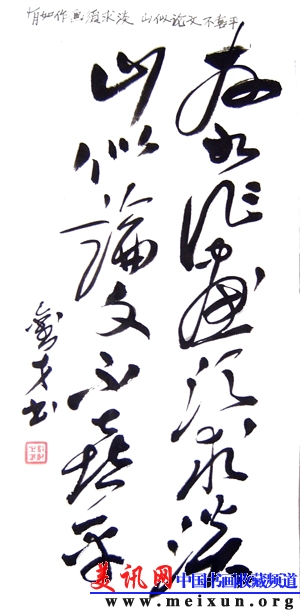 如作画须求淡 山似论文不喜平
友如作畫須求淡
山似論文不喜平
才书
美讯网 中国书画收藏频道
www.meixun.org